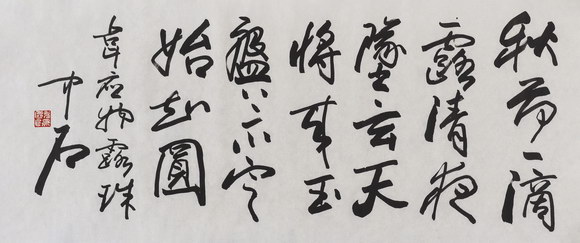 秋荷一滴
露清夜
墜玄天
将来玉
盤上不定
始知圓
韋应物露珠
中石